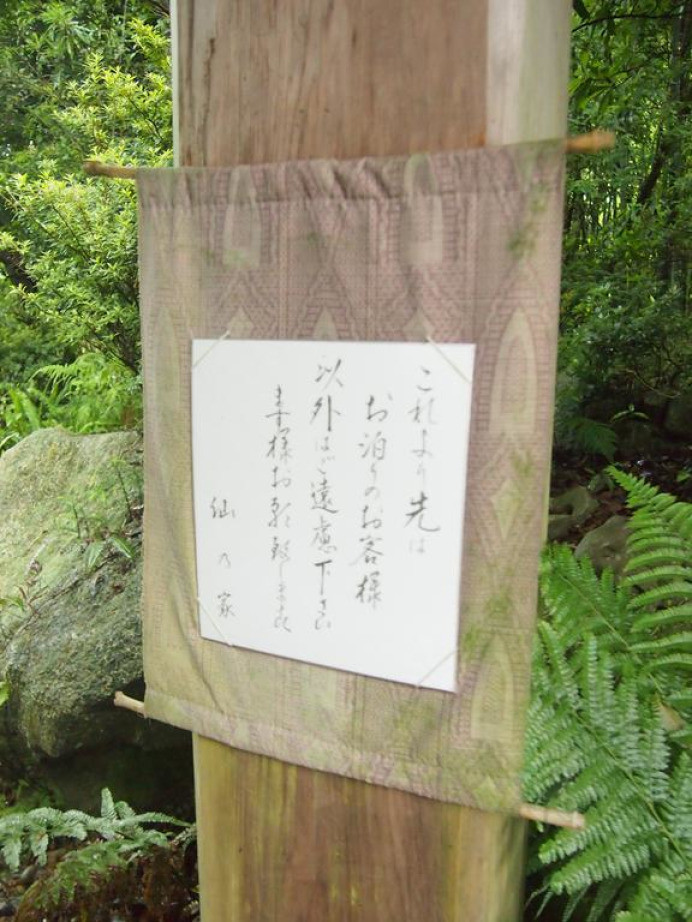 これより先は
お泊りのお客様
以外はご遠慮下さい
ます様お願致します
仙乃家